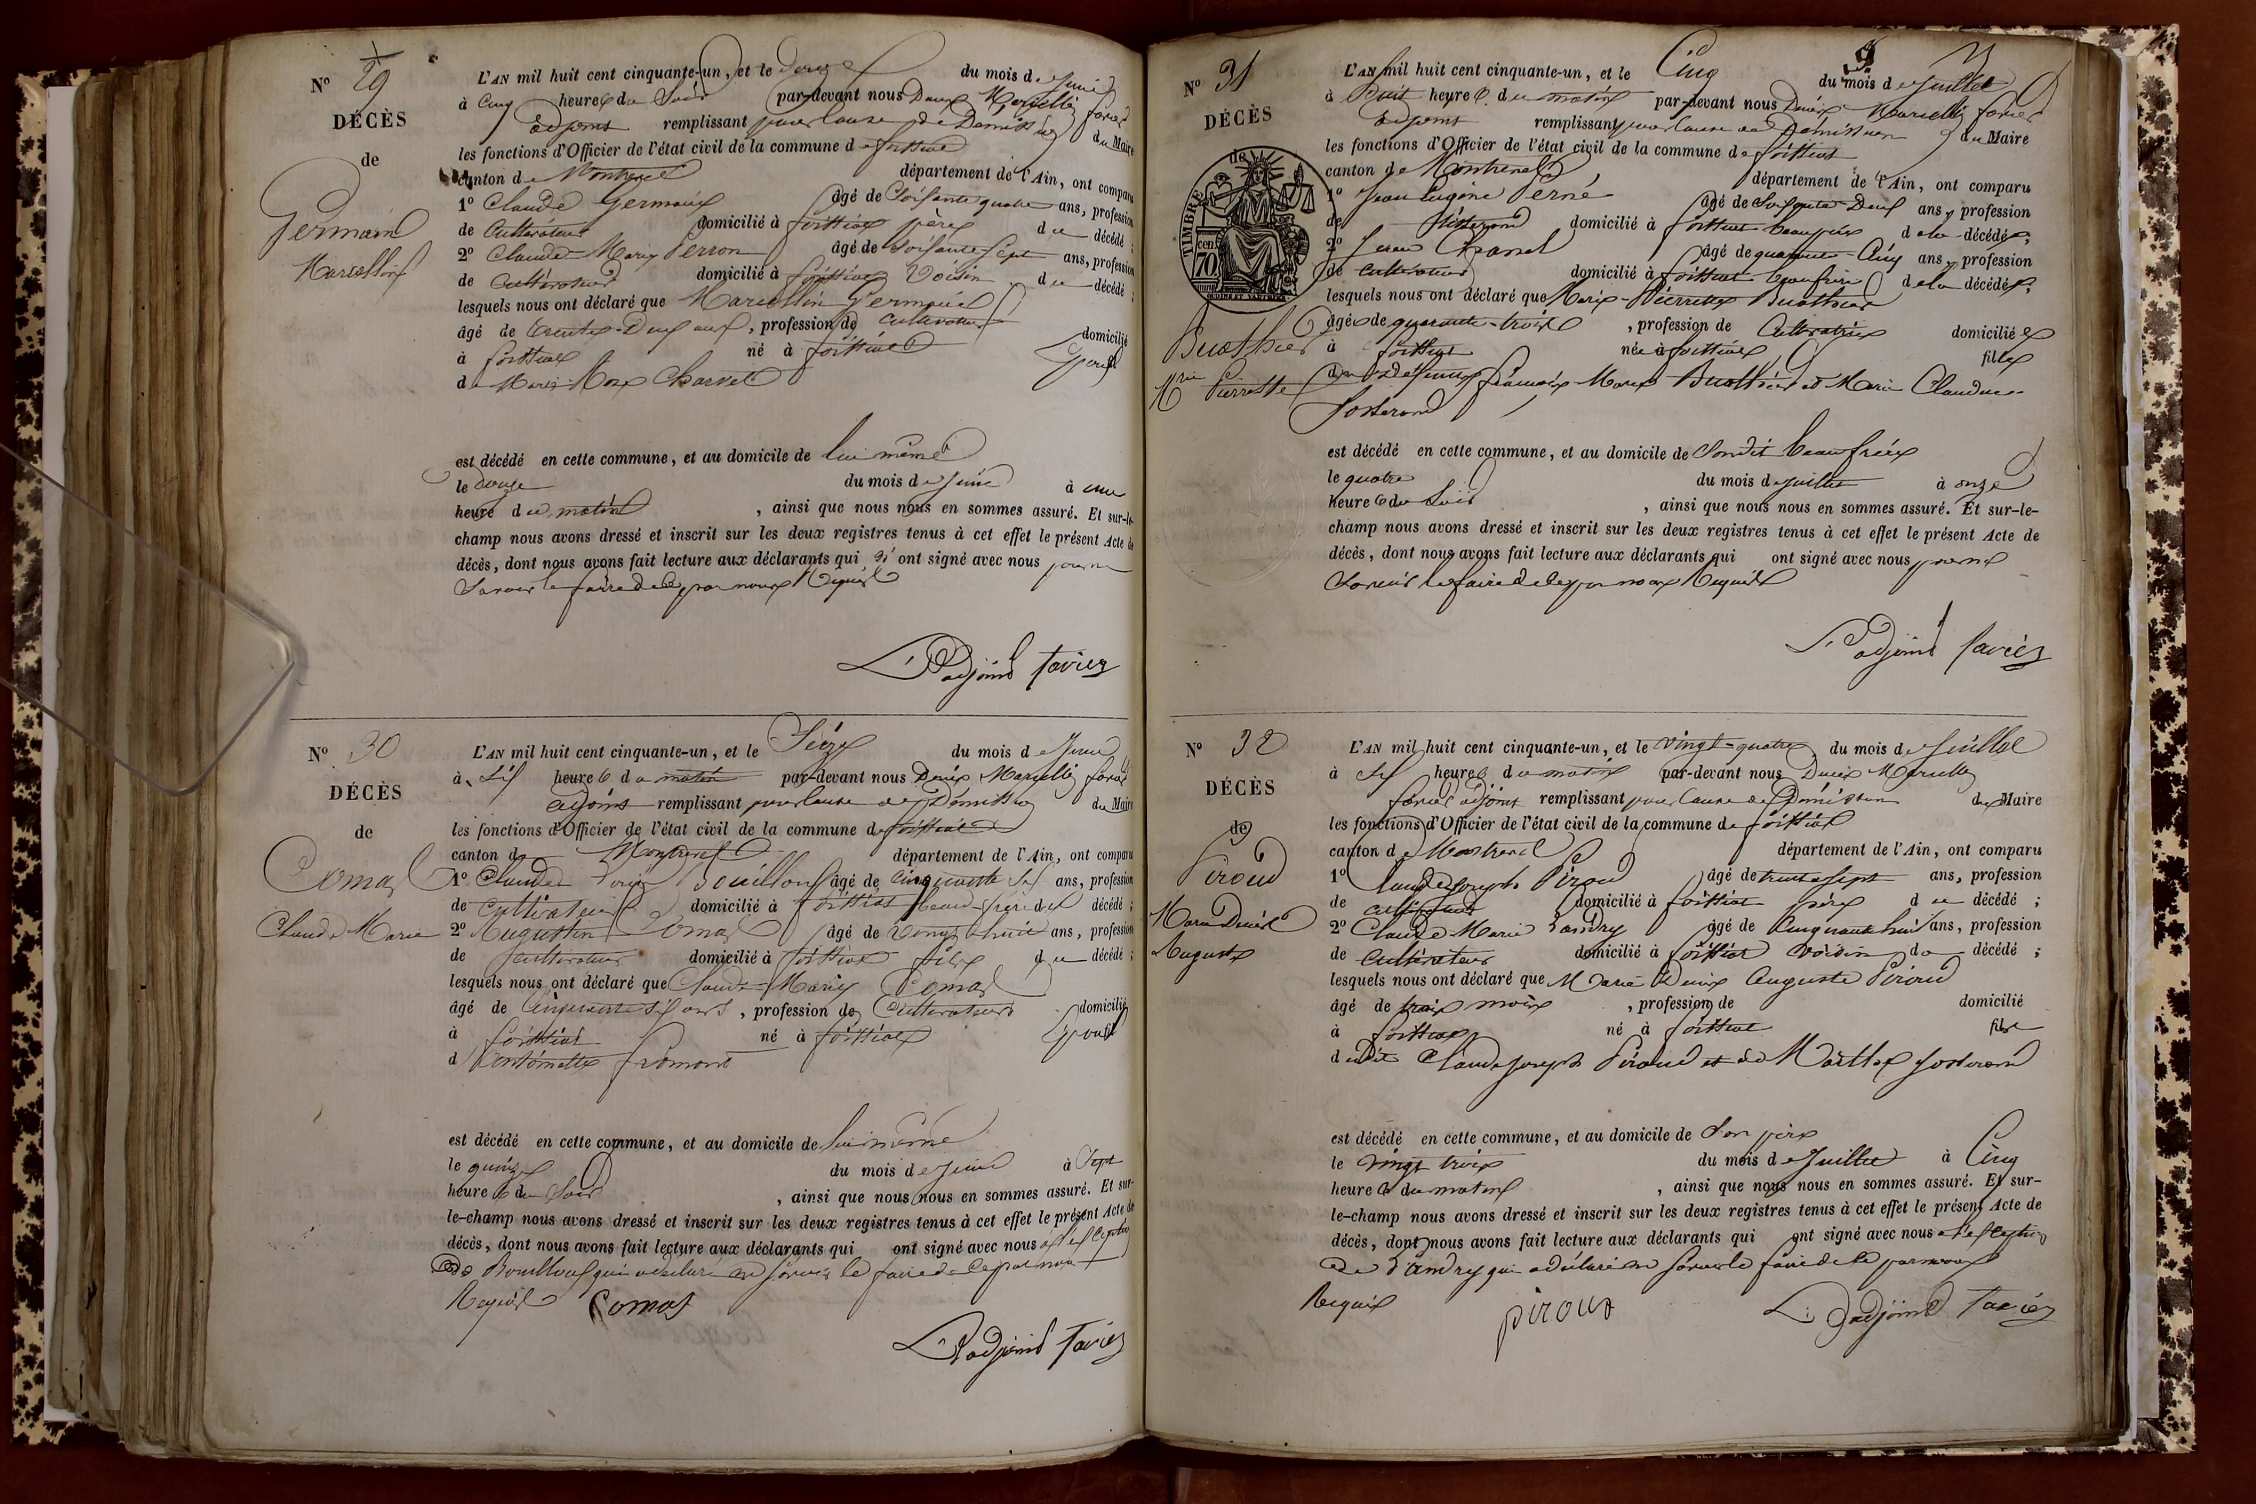 Nº 29
DÉCÈS
de
Germain
Marcellin
L'AN mil huit cent cinquante-un, et le douze du mois de Juin
à Cinq heures du Soir par-devant nous Marcellin favier
adjoint remplissant pour cause de Démission du Maire
les fonctions d'Officier de l'état civil de la commune de foissiat
canton de Montrevel département de l'Ain, ont comparu
1º Claude Germain âgé de Soixante quatre ans, profession
de Cultivateur domicilié à foissiat père du décédé ;
2º Claude Marie Perron âgé de Soixante Sept ans, profession
de Cultivateur domicilié à foissiat Voisin du décédé ;
lesquels nous ont déclaré que Marcellin Germain
âgé de trente-Deux ans, profession de Cultivateur domicilié
à foissiat né à foissiat Epoux
de Marie Charvet
est décédé en cette commune, et au domicile de lui même
le douze du mois de Juin à une
heure du matin, ainsi que nous nous en sommes assuré. Et sur-le-
champ nous avons dressé et inscrit sur les deux registres tenus à cet effet le présent Acte de
décès, dont nous avons fait lecture aux déclarants qui n'ont signé avec nous pour ne
Savoir le faire de ce par nous Requis
L'adjoint favier
Nº 30
DÉCÈS
de
Comas
Claude Marie
L'AN mil huit cent cinquante-un, et le Seize du mois de Juin
à Six heures du matin par-devant nous Marcellin favier
adjoint remplissant pour cause de Démission du Maire
les fonctions d'Officier de l'état civil de la commune de foissiat
canton de Montrevel département de l'Ain, ont comparu
1º Claude Bouilloux âgé de cinquante Six ans, profession
de Cultivateur domicilié à foissiat beau-frère du décédé ;
2º Augustin Comas âgé de vingt huit ans, profession
de Cultivateur domicilié à foissiat fils du décédé ;
lesquels nous ont déclaré que Claude Marie Comas
âgé de Cinquante Six ans, profession de Cultivateur domicilié
à foissiat né à foissiat Epoux
d'Antoinette fromont
est décédé en cette commune, et au domicile de lui même
le quinze du mois de Juin à Sept
heures du Soir, ainsi que nous nous en sommes assuré. Et sur-
le-champ nous avons dressé et inscrit sur les deux registres tenus à cet effet le présent Acte de
décès, dont nous avons fait lecture aux déclarants qui ont signé avec nous à l'exception
de Bouilloux qui a déclaré ne Savoir le faire de ce par nous
Requis Comas
L'adjoint favier
9
Nº 31
DÉCÈS
de
TIMBRE
70
Buathier
Mrie Pierrette
L'AN mil huit cent cinquante-un, et le Cinq du mois de Juillet
à Huit heures du matin par-devant nous Marcellin favier
adjoint remplissant pour cause de Démission du Maire
les fonctions d'Officier de l'état civil de la commune de foissiat
canton de Montrevel département de l'Ain, ont comparu
1º Jean Eugène âgé de Soixante Deux ans, profession
de domicilié à foissiat beau père de la décédée ;
2º âgé de quarante-Cinq ans, profession
de cultivateur domicilié à foissiat beau frère de la décédée ;
lesquels nous ont déclaré que Marie-Pierrette Buathier
âgée de quarante-trois, profession de Cultivatrice domiciliée
à foissiat née à foissiat fille
de defunts françois Marie Buathier et Marie Claudine
Josserand
est décédé en cette commune, et au domicile de Son dit beau frère
le quatre du mois de juillet à onze
heures du Soir, ainsi que nous nous en sommes assuré. Et sur-le-
champ nous avons dressé et inscrit sur les deux registres tenus à cet effet le présent Acte de
décès, dont nous avons fait lecture aux déclarants qui ont signé avec nous pour ne
Savoir le faire de ce par nous Requis
L'adjoint favier
Nº 32
DÉCÈS
de
Piroud
Marie
Auguste
L'AN mil huit cent cinquante-un, et le vingt-quatre du mois de Juillet
à Six heures du matin par-devant nous Marcellin
favier adjoint remplissant pour cause de Démission du Maire
les fonctions d'Officier de l'état civil de la commune de foissiat
canton de Montrevel département de l'Ain, ont comparu
1º Claude Joseph Piroud âgé de trente-sept ans, profession
de cultivateur domicilié à foissiat père du décédé ;
2º Claude Marie Dandry âgé de Cinquante huit ans, profession
de Cultivateur domicilié à foissiat voisin du décédé ;
lesquels nous ont déclaré que Marie Auguste Piroud
âgé de trois mois, profession de domicilié
à foissiat né à foissiat fils
dudit Claude Joseph Piroud et de Josserand
est décédé en cette commune, et au domicile de Son père
le vingt trois du mois de Juillet à Cinq
heures du matin, ainsi que nous nous en sommes assuré. Et sur-
le-champ nous avons dressé et inscrit sur les deux registres tenus à cet effet le présent Acte de
décès, dont nous avons fait lecture aux déclarants qui ont signé avec nous à l'exception
de Dandry qui a déclaré ne Savoir le faire de ce par nous
Requis piroud L'adjoint favier